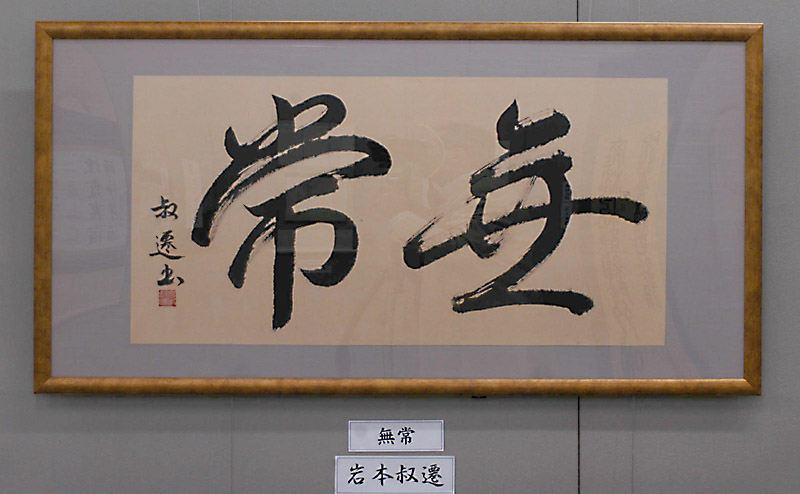 無常
叔遷書
無常
岩本叔遷